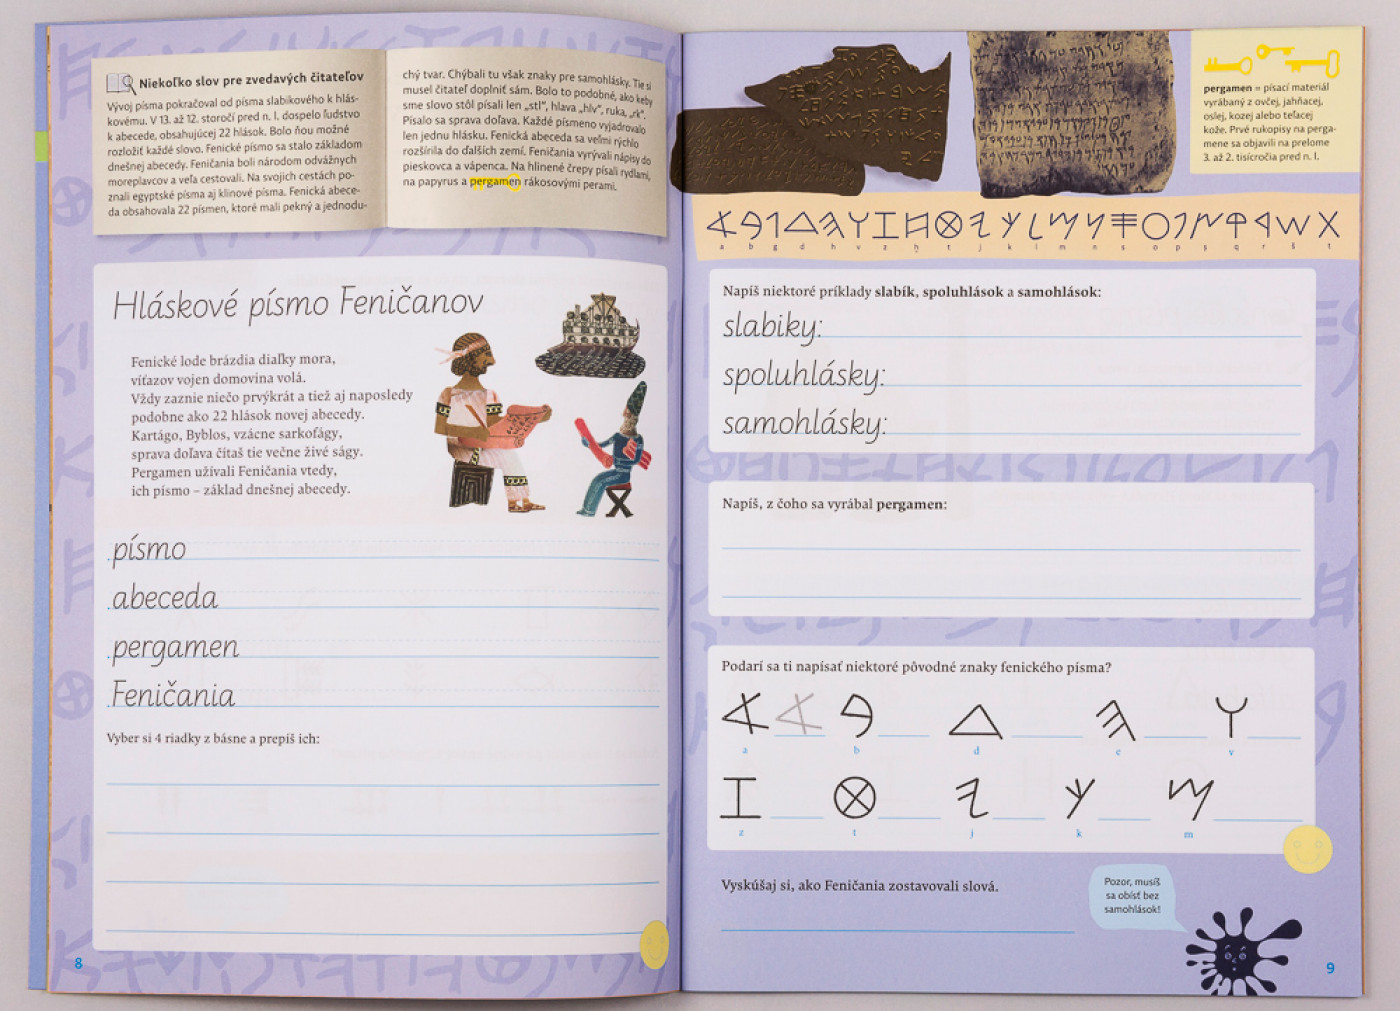 Niekoľko slov pre zvedavých čitateľov
Vývoj písma pokračoval od písma slabikového k hlás-
kovému. V 13. až 12. storočí pred n. l. dospelo ľudstvo
k abecede, obsahujúcej 22 hlások. Bolo ňou možné
rozložiť každé slovo. Fenické písmo sa stalo základom
dnešnej abecedy. Feničania boli národom odvážnych
moreplavcov a veľa cestovali. Na svojich cestách po-
znali egyptské písma aj klinové písma. Fenická abece-
da obsahovala 22 písmen, ktoré mali pekný a jednodu-
chý tvar. Chýbali tu však znaky pre samohlásky. Tie si
musel čitateľ doplniť sám. Bolo to podobné, ako keby
sme slovo stôl písali len „stl", hlava „hlv", ruka, „rk".
Písalo sa sprava doľava. Každé písmeno vyjadrovalo
len jednu hlásku. Fenická abeceda sa veľmi rýchlo
rozšírila do ďalších zemí. Feničania vyrývali nápisy do
pieskovca a vápenca. Na hlinené črepy písali rydlami,
na papyrus a pergamen rákosovými perami.
Hláskové písmo Feničanov
Fenické lode brázdia diaľky mora,
víťazov vojen domovina volá.
Vždy zaznie niečo prvýkrát a tiež aj naposledy
podobne ako 22 hlások novej abecedy.
Kartágo, Byblos, vzácne sarkofágy,
sprava doľava čítaš tie večne živé ságy.
Pergamen užívali Feničania vtedy,
ich písmo – základ dnešnej abecedy.
písmo
abeceda
pergamen
Feničania
Vyber si 4 riadky z básne a prepíš ich:
8
pergamen = písací materiál
vyrábaný z ovčej, jahňacej,
oslej, kozej alebo teľacej
kože. Prvé rukopisy na perga-
mene sa objavili na prelome
3. až 2. tisícročia pred n. l.
a b g d h v z ḥ t j k l m n s o p ş q r š t
Napíš niektoré príklady slabík, spoluhlások a samohlások:
slabiky:
spoluhlásky:
samohlásky:
Napíš, z čoho sa vyrábal pergamen:
Podarí sa ti napísať niektoré pôvodné znaky fenického písma?
a b d e v
z t j k m
Vyskúšaj si, ako Feničania zostavovali slová.
Pozor, musíš
sa obísť bez
samohlások!
9